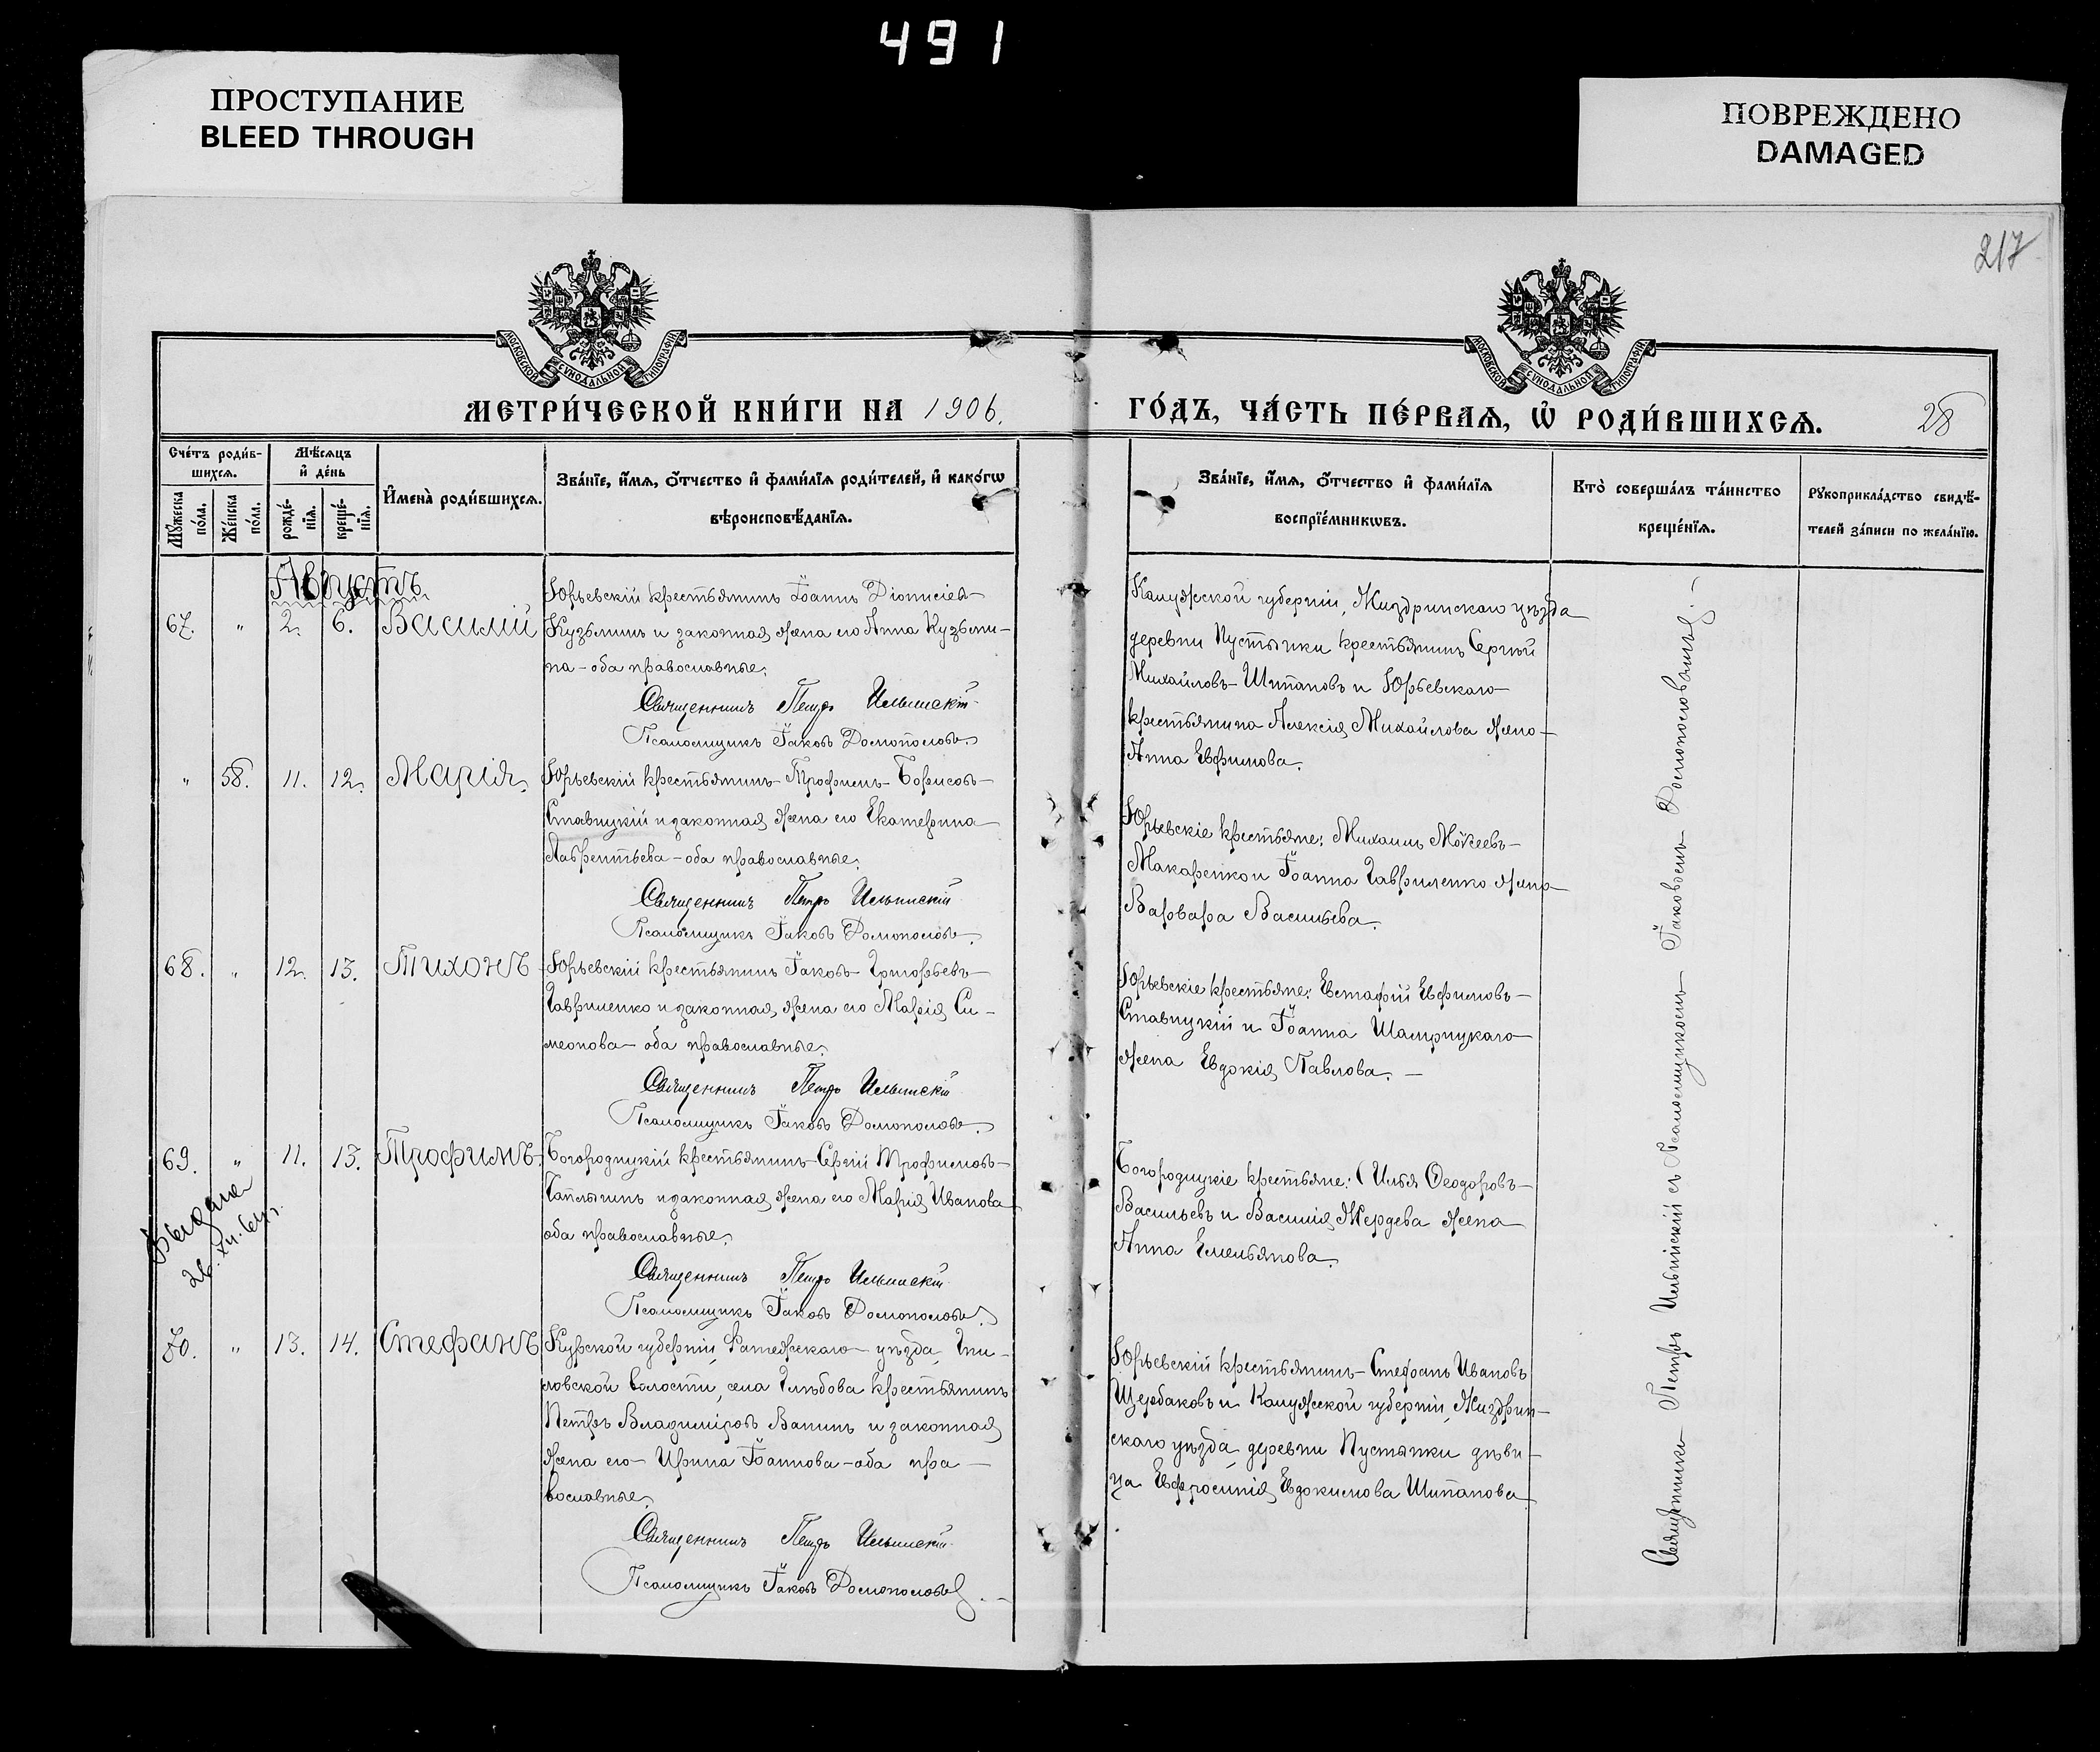 491
ПРОСТУПАНИЕ
BLEED THROUGH
ПОВРЕЖДЕНО
DAMAGED
217
МОСКОВСКОЙ СѴНОДАЛЬНОЙ ТИПОГРАФІИ
МОСКОВСКОЙ СѴНОДАЛЬНОЙ ТИПОГРАФІИ
МЕТРИ́ЧЕСКОЙ КНИ́ГИ НА 1906.
ГО́ДЪ, ЧА́СТЬ ПЕ́РВАѦ, Ѡ҆ РОДИ́ВШИХСѦ.
28
Сче́тъ роди́в-
шихсѧ.
Мꙋ́жеска
по́ла.
Же́нска
по́ла.
Мѣ́сѧцъ
и҆ де́нь
рожде́-
нїѧ.
креще́-
нїѧ.
И҆мена̀ роди́вшихсѧ.
Зва́нїе, и҆́мѧ, ѻ҆́тчество и҆ фами́лїѧ роди́телей, и҆ како́гѡ
вѣроисповѣ́данїѧ.
Зва́нїе, и҆́мѧ, ѻ҆́тчество и҆ фами́лїѧ
воспрїе́мникѡвъ.
Кто̀ соверша́лъ та́инство
креще́нїѧ.
Рꙋкоприкла́дство свидѣ́-
телей за́писи по жела́нїю.
Августъ
67. " 2. 6. Василій
Юрьевскій крестьянинъ Іоаннъ Діонисіев
Кузьминъ и законная жена его Анна Кузьми-
на - оба православные.
Священникъ Петръ Ильинскій
Псаломщикъ Іаковъ
Калужской губерніи, Жиздринскаго уѣзда
деревни Пустынки крестьянинъ Сергій
Михайловъ Шипановъ и Юрьевскаго
крестьянина Алексія Михайлова жена
Анна Евфимова.
" 58. 11. 12. Марія
Юрьевскій крестьянинъ Трофимъ Борисовъ
Ставицкій и законная жена его Екатерина
Лаврентьева - оба православные.
Священникъ Петръ Ильинскій
Псаломщикъ Іаковъ
Юрьевскіе крестьяне: Михаилъ Моѵсеевъ
Макаренко и Іоанна Гавриленко жена
Варвара Васильева.
68. " 12. 13. Тихонъ
Юрьевскій крестьянинъ Іаковъ Григорьевъ
Гавриленко и законная жена его Марія Си-
меонова - оба православные.
Священникъ Петръ Ильинскій
Псаломщикъ Іаковъ
Юрьевскіе крестьяне: Евстафій Евфимовъ
Ставицкій и Іоанна
жена Евдокія Павлова. -
69. " 11. 13. Трофимъ.
Богородицкій крестьянинъ Сергій Трофимовъ
и законная жена его Марія Иванова
оба православные.
Священникъ Петръ Ильинскій
Псаломщикъ Іаковъ
Богородицкіе крестьяне: Илья Ѳеодоровъ
Васильевъ и Василія Жердева жена
Анна Емельянова.
Выдана
26.XII.
70. " 13. 14. Стефанъ
Курской губерніи, Фатежскаго уѣзда,
ловской волости, села Глѣбова крестьянинъ
Петръ Владиміровъ Ванинъ и законная
жена его Ирина Іоаннова - оба пра-
вославные.
Священникъ Петръ Ильинскій
Псаломщикъ Іаковъ
Юрьевскій крестьянинъ Стефанъ Ивановъ
Щербаковъ и Калужской губерніи, Жиздрин-
скаго уѣзда, деревни Пустынки дѣви-
ца Евфросинія Евдокимова Шипанова
Священникъ Петръ Ильинскій съ Псаломщикомъ Іаковомъ